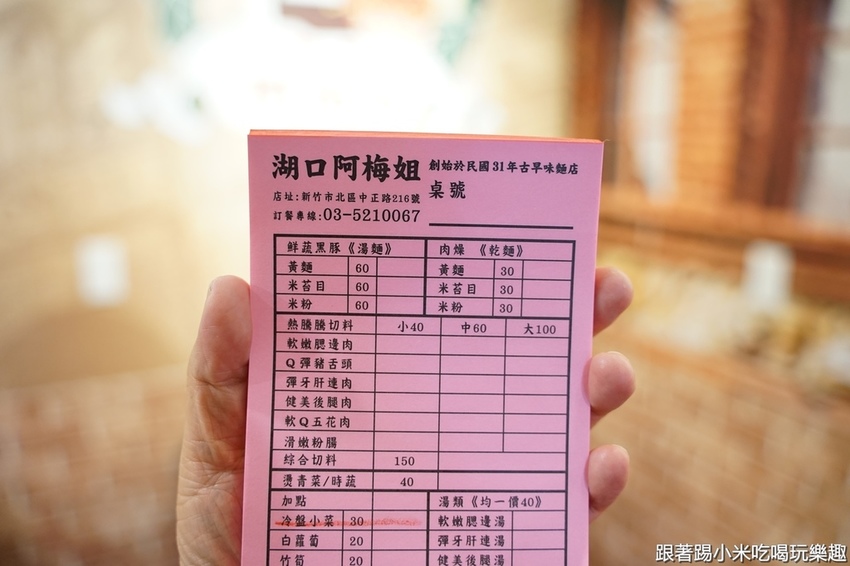 湖口阿梅姐 創始於民國31年古早味麵店
店址:新竹市北區中正路216號 桌號
訂餐專線:03-5210067
鮮蔬黑豚《湯麵》 肉燥《乾麵》
黃麵 60 黃麵 30
米苔目 60 米苔目 30
米粉 60 米粉 30
熱騰騰切料 小40 中60 大100
軟嫩腮邊肉
Q彈豬舌頭
彈牙肝連肉
健美後腿肉
軟Q五花肉
滑嫩粉腸
綜合切料 150
燙青菜/時蔬 40
加點 湯類《均一價40》
冷盤小菜 30 軟嫩腮邊湯
白蘿蔔 20 彈牙肝連湯
竹筍 20 健美後腿湯
跟著踢小米吃喝玩樂趣